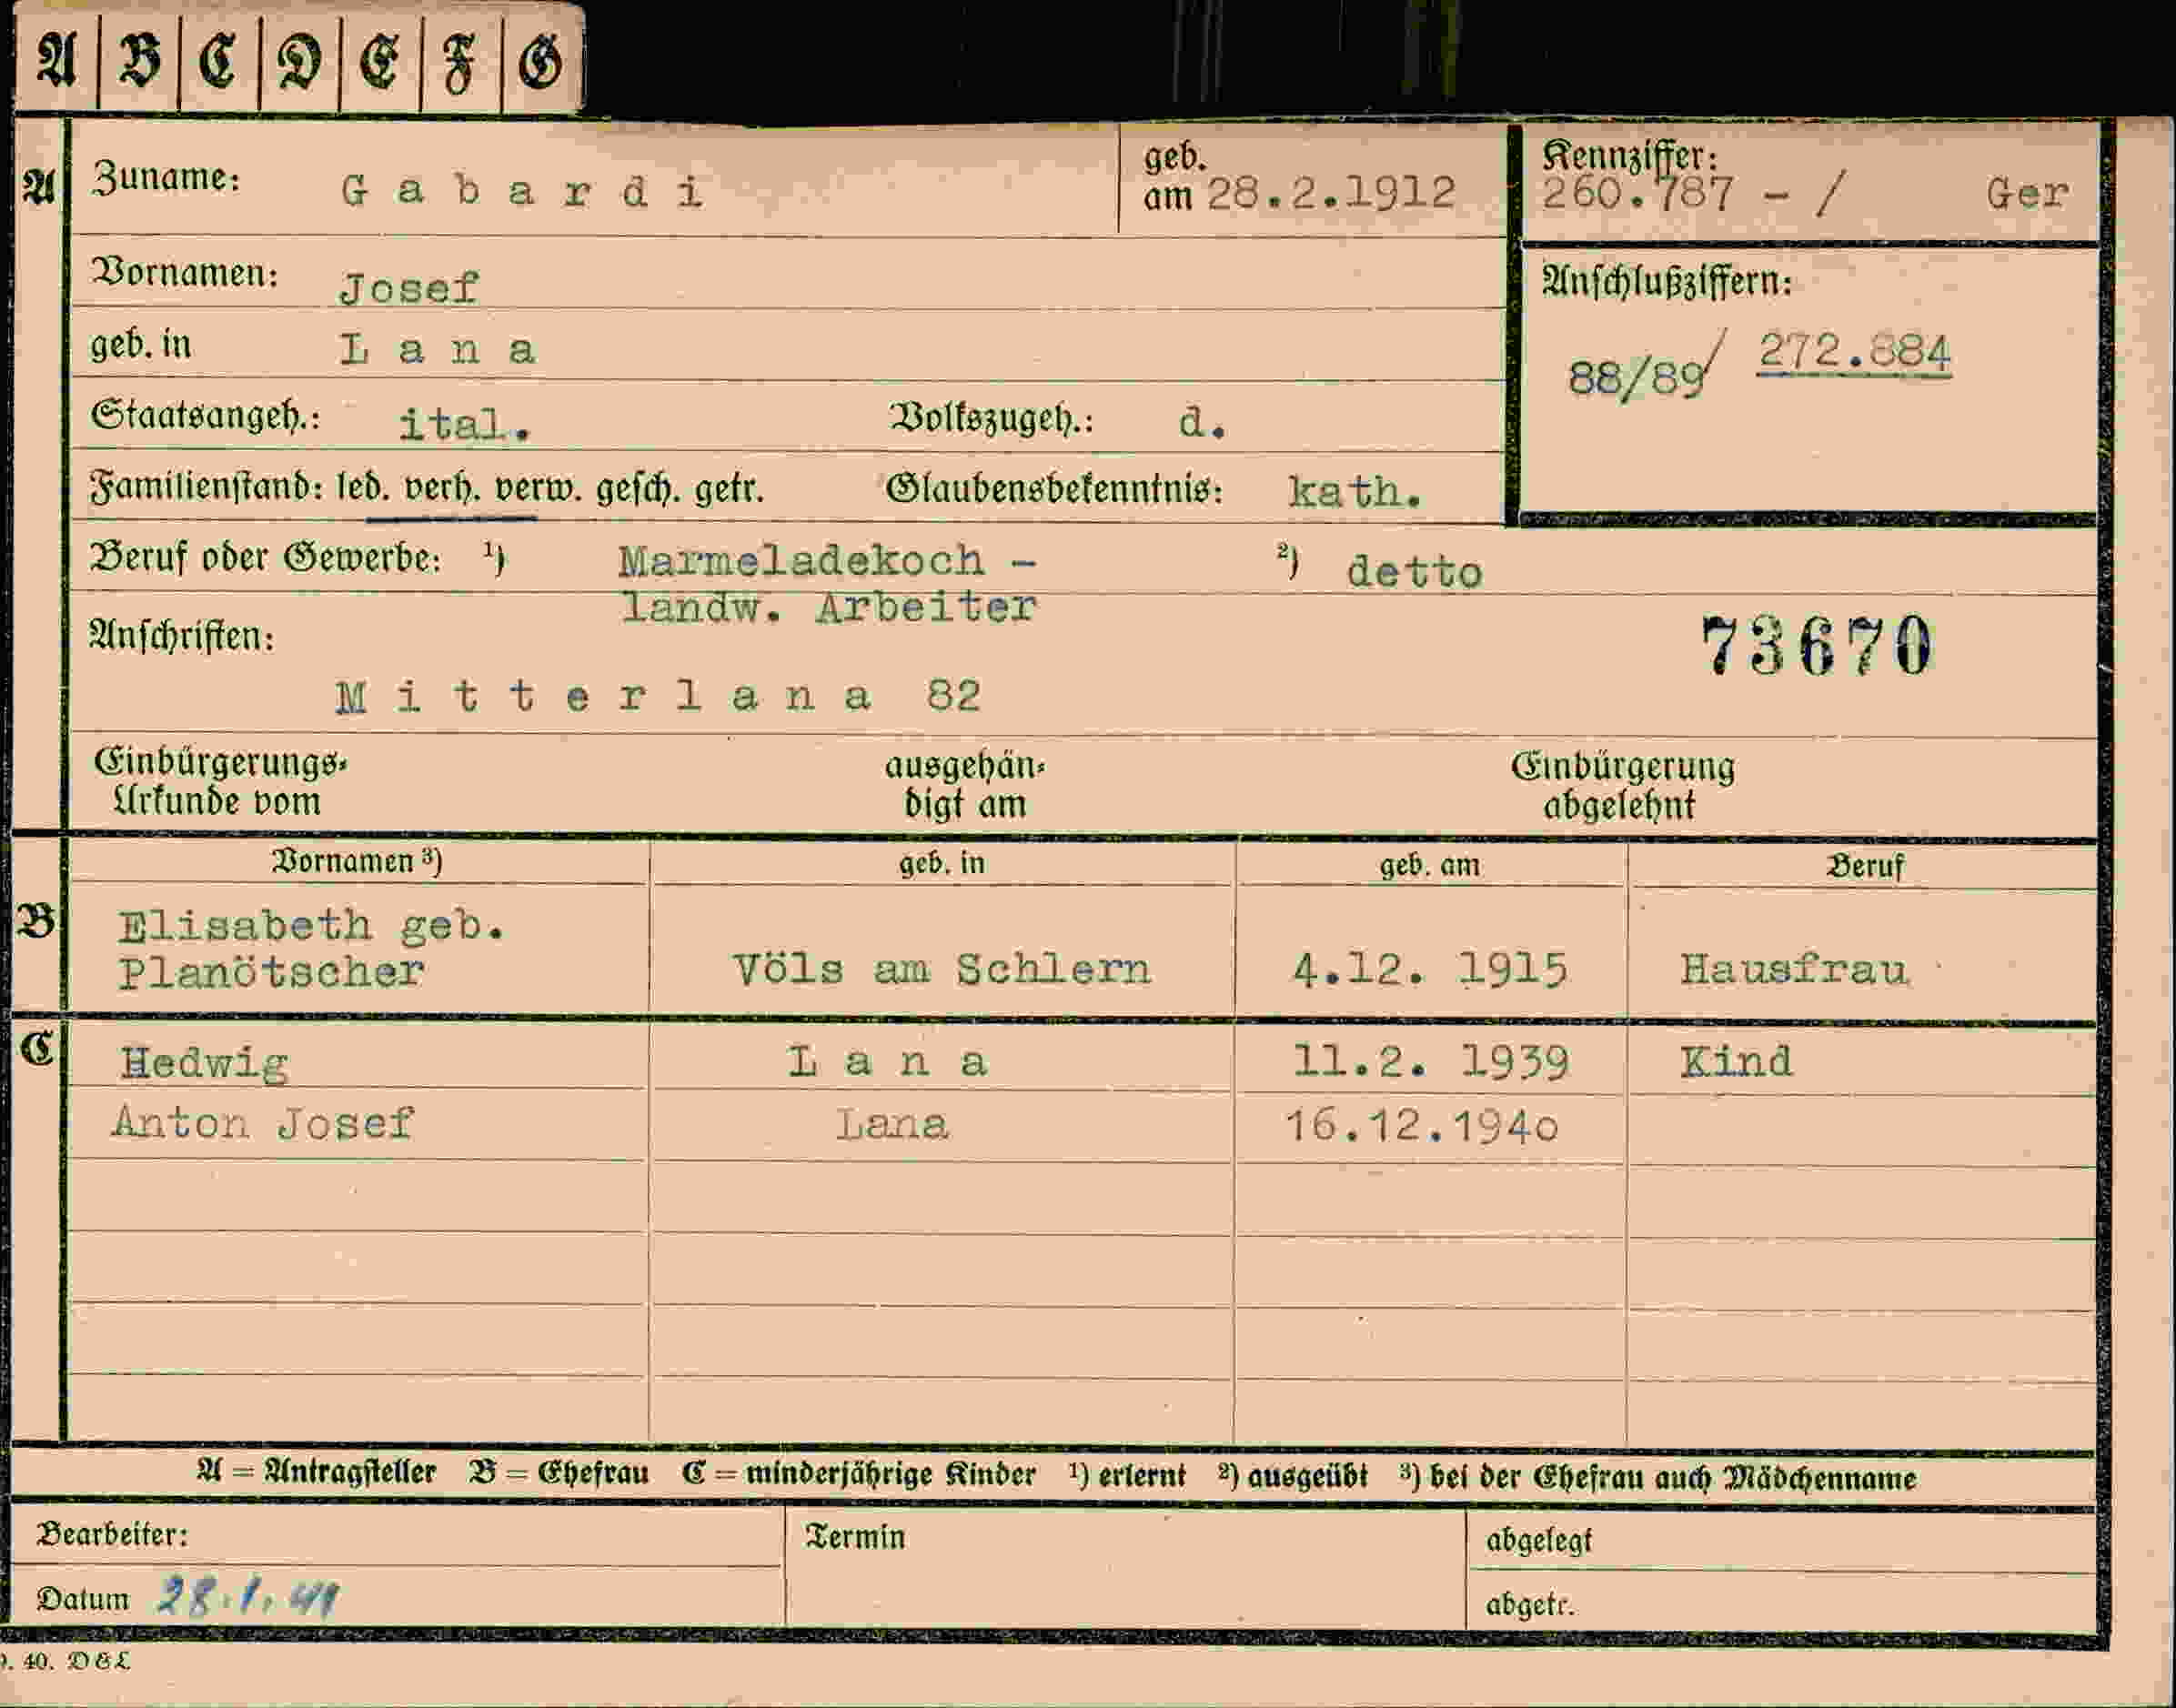 A B C D E F G
A Zuname: Gabardi geb. am 28.2.1912 Kennziffer: 260.787 - / Ger
Vornamen: Josef Anschlußziffern:
geb. in Lana 88/89/ 272.884
Staatsangeh.: ital. Volkszugeh.: d.
Familienstand: led. verh. verw. gesch. getr. Glaubensbekenntnis: kath.
Beruf oder Gewerbe: ¹) Marmeladekoch - ²) detto
landw. Arbeiter
Anschriften: 73670
Mitterlana 82
Einbürgerungs- ausgehän- Einbürgerung
Urkunde vom digt am abgelehnt
Vornamen ³) geb. in geb. am Beruf
B Elisabeth geb.
Planötscher Völs am Schlern 4.12. 1915 Hausfrau
C Hedwig Lana 11.2. 1939 Kind
Anton Josef Lana 16.12.1940
A = Antragsteller B = Ehefrau C = minderjährige Kinder ¹) erlernt ²) ausgeübt ³) bei der Ehefrau auch Mädchenname
Bearbeiter: Termin abgelegt
Datum 28.1.41 abgetr.
40. D&L